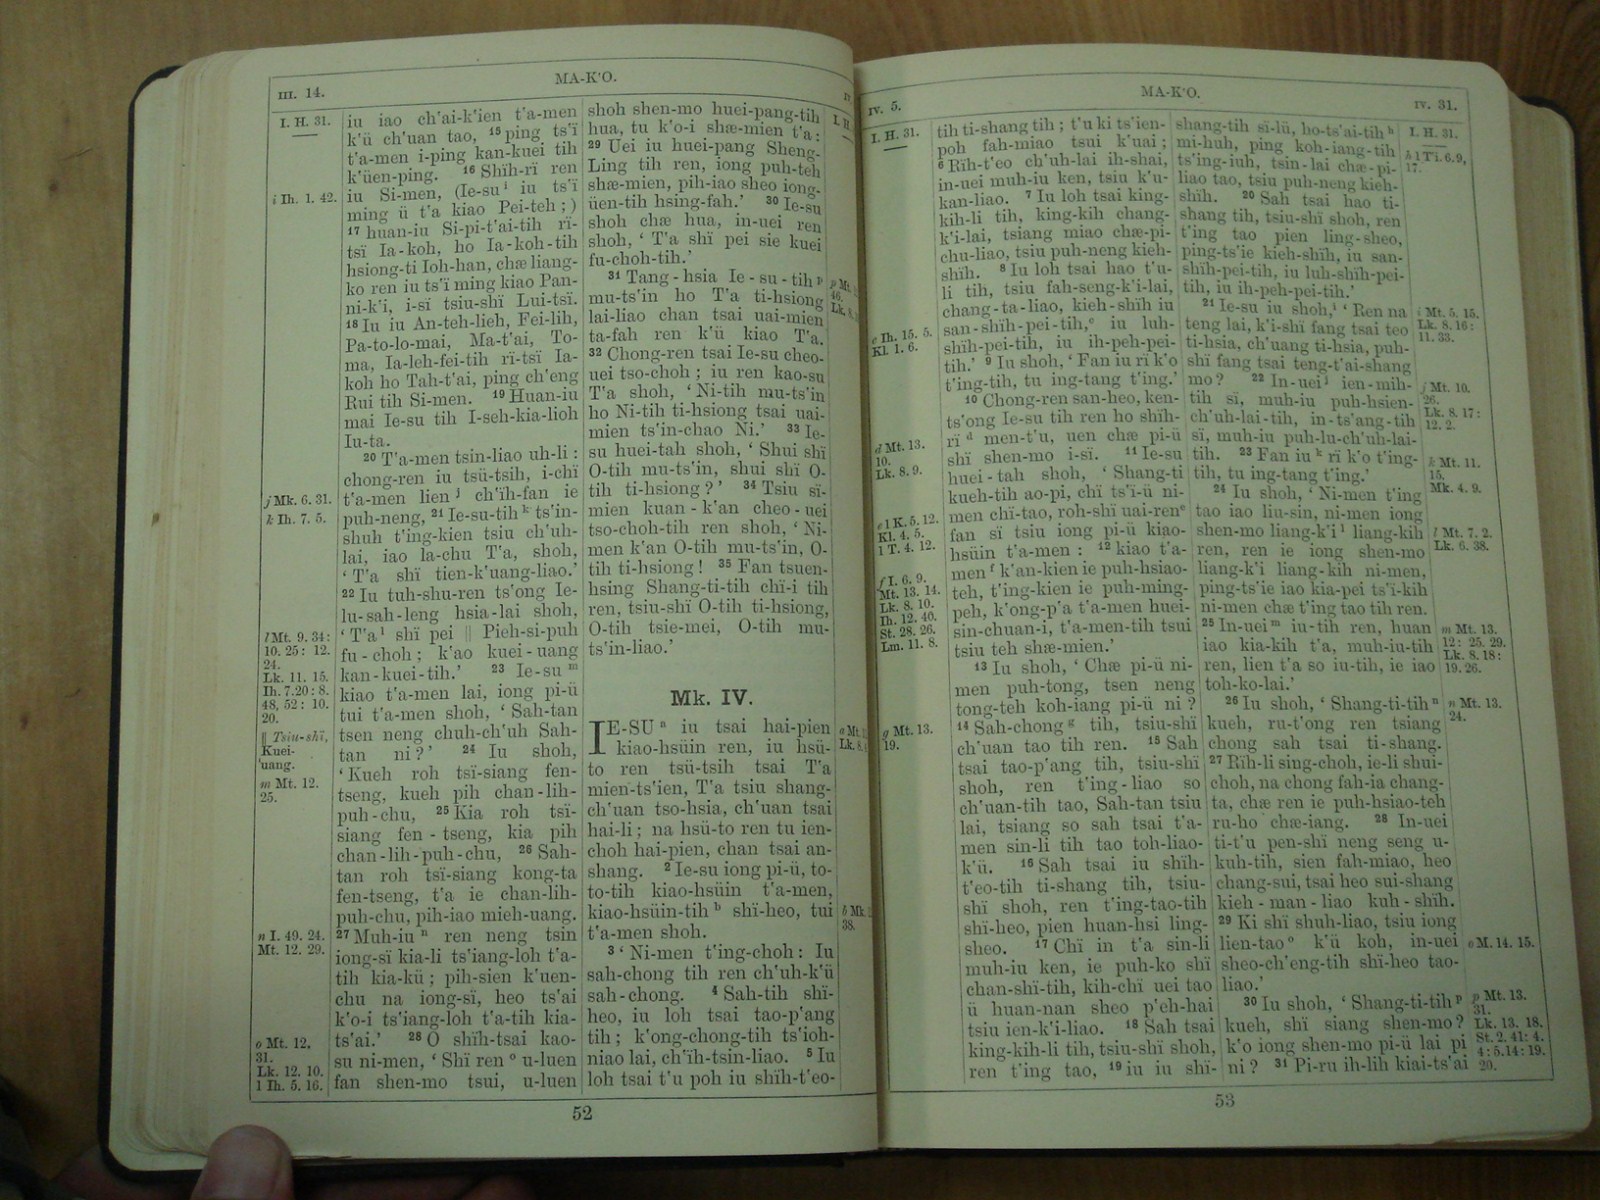 III. 14.
MA-K'O.
IV.
I. H. 31.
i Ih. 1. 42.
j Mk. 6. 31.
k Ih. 7. 5.
l Mt. 9. 34:
10. 25: 12.
24.
Lk. 11. 15.
Ih. 7. 20: 8.
48, 52: 10.
20.
|| Tsiu-shï,
Kuei-
'uang.
m Mt. 12.
25.
n I. 49. 24.
Mt. 12. 29.
o Mt. 12.
31.
Lk. 12. 10.
1 Ih. 5. 16.
iu iao ch'ai-k'ien t'a-men
k'ü ch'uan tao, 15 ping ts'ï
t'a-men i-ping kan-kuei tih
k'üen-ping. 16 Shïh-rï ren
iu Si-men, (Ie-su i iu ts'ï
ming ü t'a kiao Pei-teh;)
17 huan-iu Si-pi-t'ai-tih rï-
tsï Ia-koh, ho Ia-koh-tih
hsiong-ti Ioh-han, chæ liang-
ko ren iu ts'ï ming kiao Pan-
ni-k'i, i-sï tsiu-shï Lui-tsï.
18 Iu iu An-teh-lieh, Fei-lih,
Pa-to-lo-mai, Ma-t'ai, To-
ma, Ia-leh-fei-tih rï-tsï Ia-
koh ho Tah-t'ai, ping ch'eng
Rui tih Si-men. 19 Huan-iu
mai Ie-su tih I-seh-kia-lioh
Iu-ta.
20 T'a-men tsin-liao uh-li:
chong-ren iu tsü-tsih, i-chï
t'a-men lien j ch'ïh-fan ie
puh-neng, 21 Ie-su-tih k ts'in-
shuh t'ing-kien tsiu ch'uh-
lai, iao la-chu T'a, shoh,
' T'a shï tien-k'uang-liao.'
22 Iu tuh-shu-ren ts'ong Ie-
lu-sah-leng hsia-lai shoh,
' T'a l shï pei || Pieh-si-puh
fu-choh; k'ao kuei-uang
kan-kuei-tih.' 23 Ie-su m
kiao t'a-men lai, iong pi-ü
tui t'a-men shoh, ' Sah-tan
tsen neng chuh-ch'uh Sah-
tan ni?' 24 Iu shoh,
' Kueh roh tsï-siang fen-
tseng, kueh pih chan-lih-
puh-chu, 25 Kia roh tsï-
siang fen-tseng, kia pih
chan-lih-puh-chu, 26 Sah-
tan roh tsï-siang kong-ta
fen-tseng, t'a ie chan-lih-
puh-chu, pih-iao mieh-uang.
27 Muh-iu n ren neng tsin
iong-sï kia-li ts'iang-loh t'a-
tih kia-kü; pih-sien k'uen-
chu na iong-sï, heo ts'ai
k'o-i ts'iang-loh t'a-tih kia-
ts'ai.' 28 O shïh-tsai kao-
su ni-men, ' Shï ren o u-luen
fan shen-mo tsui, u-luen
shoh shen-mo huei-pang-tih
hua, tu k'o-i shæ-mien t'a:
29 Uei iu huei-pang Sheng-
Ling tih ren, iong puh-teh
shæ-mien, pih-iao sheo iong-
üen-tih hsing-fah.' 30 Ie-su
shoh chæ hua, in-uei ren
shoh, ' T'a shï pei sie kuei
fu-choh-tih.'
31 Tang-hsia Ie-su-tih p
mu-ts'in ho T'a ti-hsiong
lai-liao chan tsai uai-mien
ta-fah ren k'ü kiao T'a.
32 Chong-ren tsai Ie-su cheo-
uei tso-choh; iu ren kao-su
T'a shoh, ' Ni-tih mu-ts'in
ho Ni-tih ti-hsiong tsai uai-
mien ts'in-chao Ni.' 33 Ie-
su huei-tah shoh, ' Shui shï
O-tih mu-ts'in, shui shï O-
tih ti-hsiong?' 34 Tsiu sï-
mien kuan-k'an cheo-uei
tso-choh-tih ren shoh, ' Ni-
men k'an O-tih mu-ts'in, O-
tih ti-hsiong! 35 Fan tsuen-
hsing Shang-ti-tih chï-i tih
ren, tsiu-shï O-tih ti-hsiong,
O-tih tsie-mei, O-tih mu-
ts'in-liao.'
Mk. IV.
IE-SU n iu tsai hai-pien
kiao-hsüin ren, iu hsü-
to ren tsü-tsih tsai T'a
mien-ts'ien, T'a tsiu shang-
ch'uan tso-hsia, ch'uan tsai
hai-li; na hsü-to ren tu ien-
choh hai-pien, chan tsai an-
shang. 2 Ie-su iong pi-ü, to-
to-tih kiao-hsüin t'a-men,
kiao-hsüin-tih b shï-heo, tui
t'a-men shoh.
3 ' Ni-men t'ing-choh: Iu
sah-chong tih ren ch'uh-k'ü
sah-chong. 4 Sah-tih shï-
heo, iu loh tsai tao-p'ang
tih; k'ong-chong-tih ts'ioh-
niao lai, ch'ïh-tsin-liao. 5 Iu
loh tsai t'u poh iu shïh-t'eo-
I. H.
p Mt.
46.
Lk. 8.
a Mt.
Lk. 8.
b Mk.
38.
52
IV. 5.
MA-K'O.
IV. 31.
I. H. 31.
c Ih. 15. 5.
Kl. 1. 6.
d Mt. 13.
10.
Lk. 8. 9.
e 1 K. 5. 12.
Kl. 4. 5.
1 T. 4. 12.
f I. 6. 9.
Mt. 13. 14.
Lk. 8. 10.
Ih. 12. 40.
St. 28. 26.
Lm. 11. 8.
g Mt. 13.
19.
tih ti-shang tih; t'u ki ts'ien-
poh fah-miao tsui k'uai;
6 Rïh-t'eo ch'uh-lai ih-shai,
in-uei muh-iu ken, tsiu k'u-
kan-liao. 7 Iu loh tsai king-
kih-li tih, king-kih chang-
k'i-lai, tsiang miao chæ-pi-
chu-liao, tsiu puh-neng kieh-
shïh. 8 Iu loh tsai hao t'u-
li tih, tsiu fah-seng-k'i-lai,
chang-ta-liao, kieh-shïh iu
san-shïh-pei-tih, c iu luh-
shïh-pei-tih, iu ih-peh-pei-
tih.' 9 Iu shoh, ' Fan iu rï k'o
t'ing-tih, tu ing-tang t'ing.'
10 Chong-ren san-heo, ken-
ts'ong Ie-su tih ren ho shïh-
rï d men-t'u, uen chæ pi-ü
shï shen-mo i-sï. 11 Ie-su
huei-tah shoh, ' Shang-ti
kueh-tih ao-pi, chï ts'ï-ü ni-
men chï-tao, roh-shï uai-ren e
fan sï tsiu iong pi-ü kiao-
hsüin t'a-men: 12 kiao t'a-
men f k'an-kien ie puh-hsiao-
teh, t'ing-kien ie puh-ming-
peh, k'ong-p'a t'a-men huei-
sin-chuan-i, t'a-men-tih tsui
tsiu teh shæ-mien.'
13 Iu shoh, ' Chæ pi-ü ni-
men puh-tong, tsen neng
tong-teh koh-iang pi-ü ni?
14 Sah-chong g tih, tsiu-shï
ch'uan tao tih ren. 15 Sah
tsai tao-p'ang tih, tsiu-shï
shoh, ren t'ing-liao so
ch'uan-tih tao, Sah-tan tsiu
lai, tsiang so sah tsai t'a-
men sin-li tih tao toh-liao-
k'ü. 16 Sah tsai iu shïh-
t'eo-tih ti-shang tih, tsiu-
shï shoh, ren t'ing-tao-tih
shï-heo, pien huan-hsi ling-
sheo. 17 Chï in t'a sin-li
muh-iu ken, ie puh-ko shï
chan-shï-tih, kih-chï uei tao
ü huan-nan sheo p'eh-hai
tsiu ien-k'i-liao. 18 Sah tsai
king-kih-li tih, tsiu-shï shoh,
ren t'ing tao, 19 iu iu shï-
shang-tih sï-lü, ho-ts'ai-tih h
mi-huh, ping koh-iang-tih
ts'ing-iuh, tsin-lai chæ-pi-
liao tao, tsiu puh-neng kieh-
shïh. 20 Sah tsai hao ti-
shang tih, tsiu-shï shoh, ren
t'ing tao pien ling-sheo,
ping-ts'ie kieh-shïh, iu san-
shïh-pei-tih, iu luh-shïh-pei-
tih, iu ih-peh-pei-tih.'
21 Ie-su iu shoh, i ' Ren na
teng lai, k'i-shï fang tsai teo
ti-hsia, ch'uang ti-hsia, puh-
shï fang tsai teng-t'ai-shang
mo? 22 In-uei j ien-mih-
tih sï, muh-iu puh-hsien-
ch'uh-lai-tih, in-ts'ang-tih
sï, muh-iu puh-lu-ch'uh-lai-
tih. 23 Fan iu k rï k'o t'ing-
tih, tu ing-tang t'ing.'
24 Iu shoh, ' Ni-men t'ing
tao iao liu-sin, ni-men iong
shen-mo liang-k'i l liang-kih
ren, ren ie iong shen-mo
liang-k'i liang-kih ni-men,
ping-ts'ie iao kia-pei ts'ï-kih
ni-men chæ t'ing tao tih ren.
25 In-uei m iu-tih ren, huan
iao kia-kih t'a, muh-iu-tih
ren, lien t'a so iu-tih, ie iao
toh-ko-lai.'
26 Iu shoh, ' Shang-ti-tih n
kueh, ru-t'ong ren tsiang
chong sah tsai ti-shang.
27 Rïh-li sing-choh, ie-li shui-
choh, na chong fah-ia chang-
ta, chæ ren ie puh-hsiao-teh
ru-ho chæ-iang. 28 In-uei
ti-t'u pen-shï neng seng u-
kuh-tih, sien fah-miao, heo
chang-sui, tsai heo sui-shang
kieh-man-liao kuh-shïh.
29 Ki shï shuh-liao, tsiu iong
lien-tao o k'ü koh, in-uei
sheo-ch'eng-tih shï-heo tao-
liao.'
30 Iu shoh, ' Shang-ti-tih p
kueh, shï siang shen-mo?
k'o iong shen-mo pi-ü lai pi
ni? 31 Pi-ru ih-lih kiai-ts'ai
I. H. 31.
h 1 Ti. 6. 9,
17.
i Mt. 5. 15.
Lk. 8. 16:
11. 33.
j Mt. 10.
26.
Lk. 8. 17:
12. 2.
k Mt. 11.
15.
Mk. 4. 9.
l Mt. 7. 2.
Lk. 6. 38.
m Mt. 13.
12: 25. 29.
Lk. 8. 18:
19. 26.
n Mt. 13.
24.
o M. 14. 15.
p Mt. 13.
31.
Lk. 13. 18.
St. 2. 41: 4.
4: 5. 14: 19.
20.
53